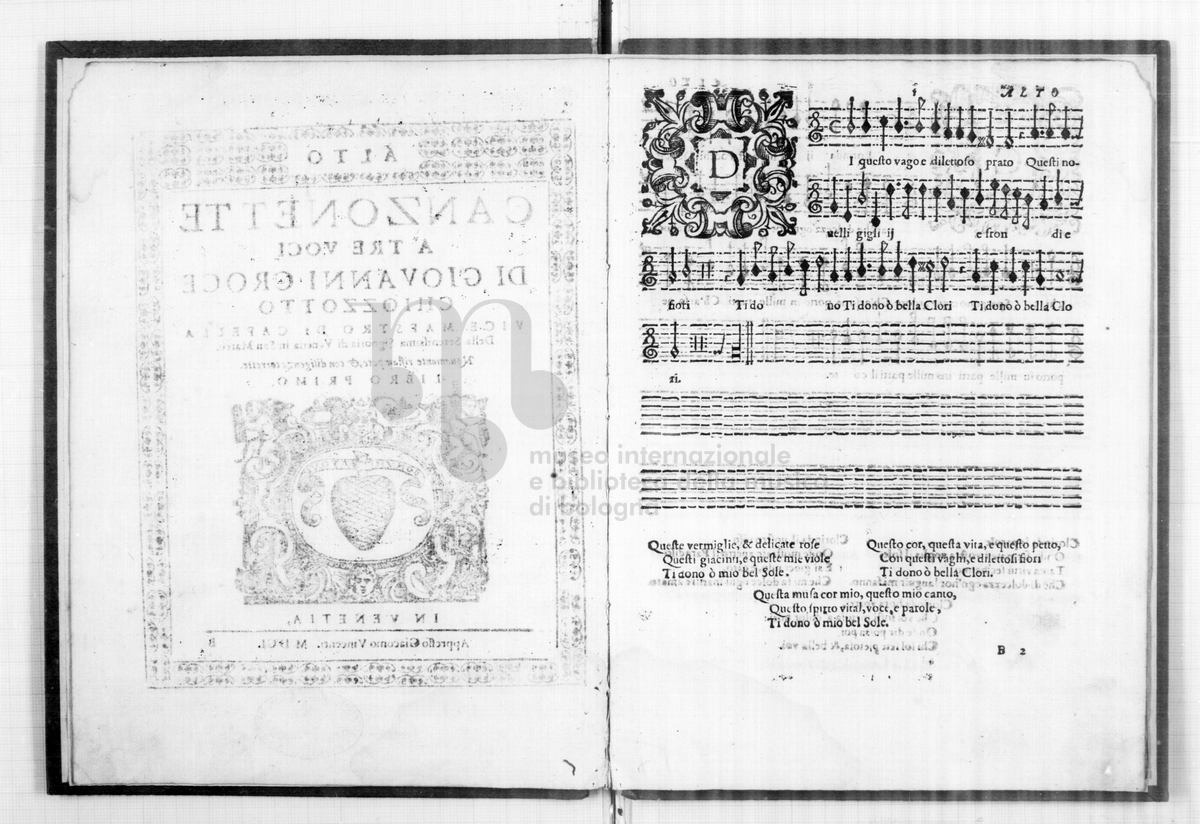 ALTO
CANZONETTE
A TRE VOCI
DI GIOVANNI CROCE
CHIOZZOTTO
VICE MAESTRO DI CAPELLA
Della Serenissima Signoria di Venetia in San Marco.
Nouamente ristampate, & con diligenza corrette.
LIBRO PRIMO.
IN VENETIA,
Appresso Giacomo Vincenti. M DCI.
B
1
ALTO
D
I questo vago e dilettoso prato Questi no-
uelli gigli ij e fron di e
fiori Ti do no Ti dono ò bella Clori Ti dono ò bella Clo
ri.
Queste vermiglie, & delicate rose
Questi giacinti, e queste mie viole
Ti dono ò mio bel Sole.
Questo cor, questa vita, e questo petto,
Con questi vaghi, e dilettosi fiori
Ti dono ò bella Clori.
Questa musa cor mio, questo mio canto,
Questo spirto vital, voci, e parole,
Ti dono ò mio bel Sole.
B 2
museo internazionale
e biblioteca della musica
di bologna